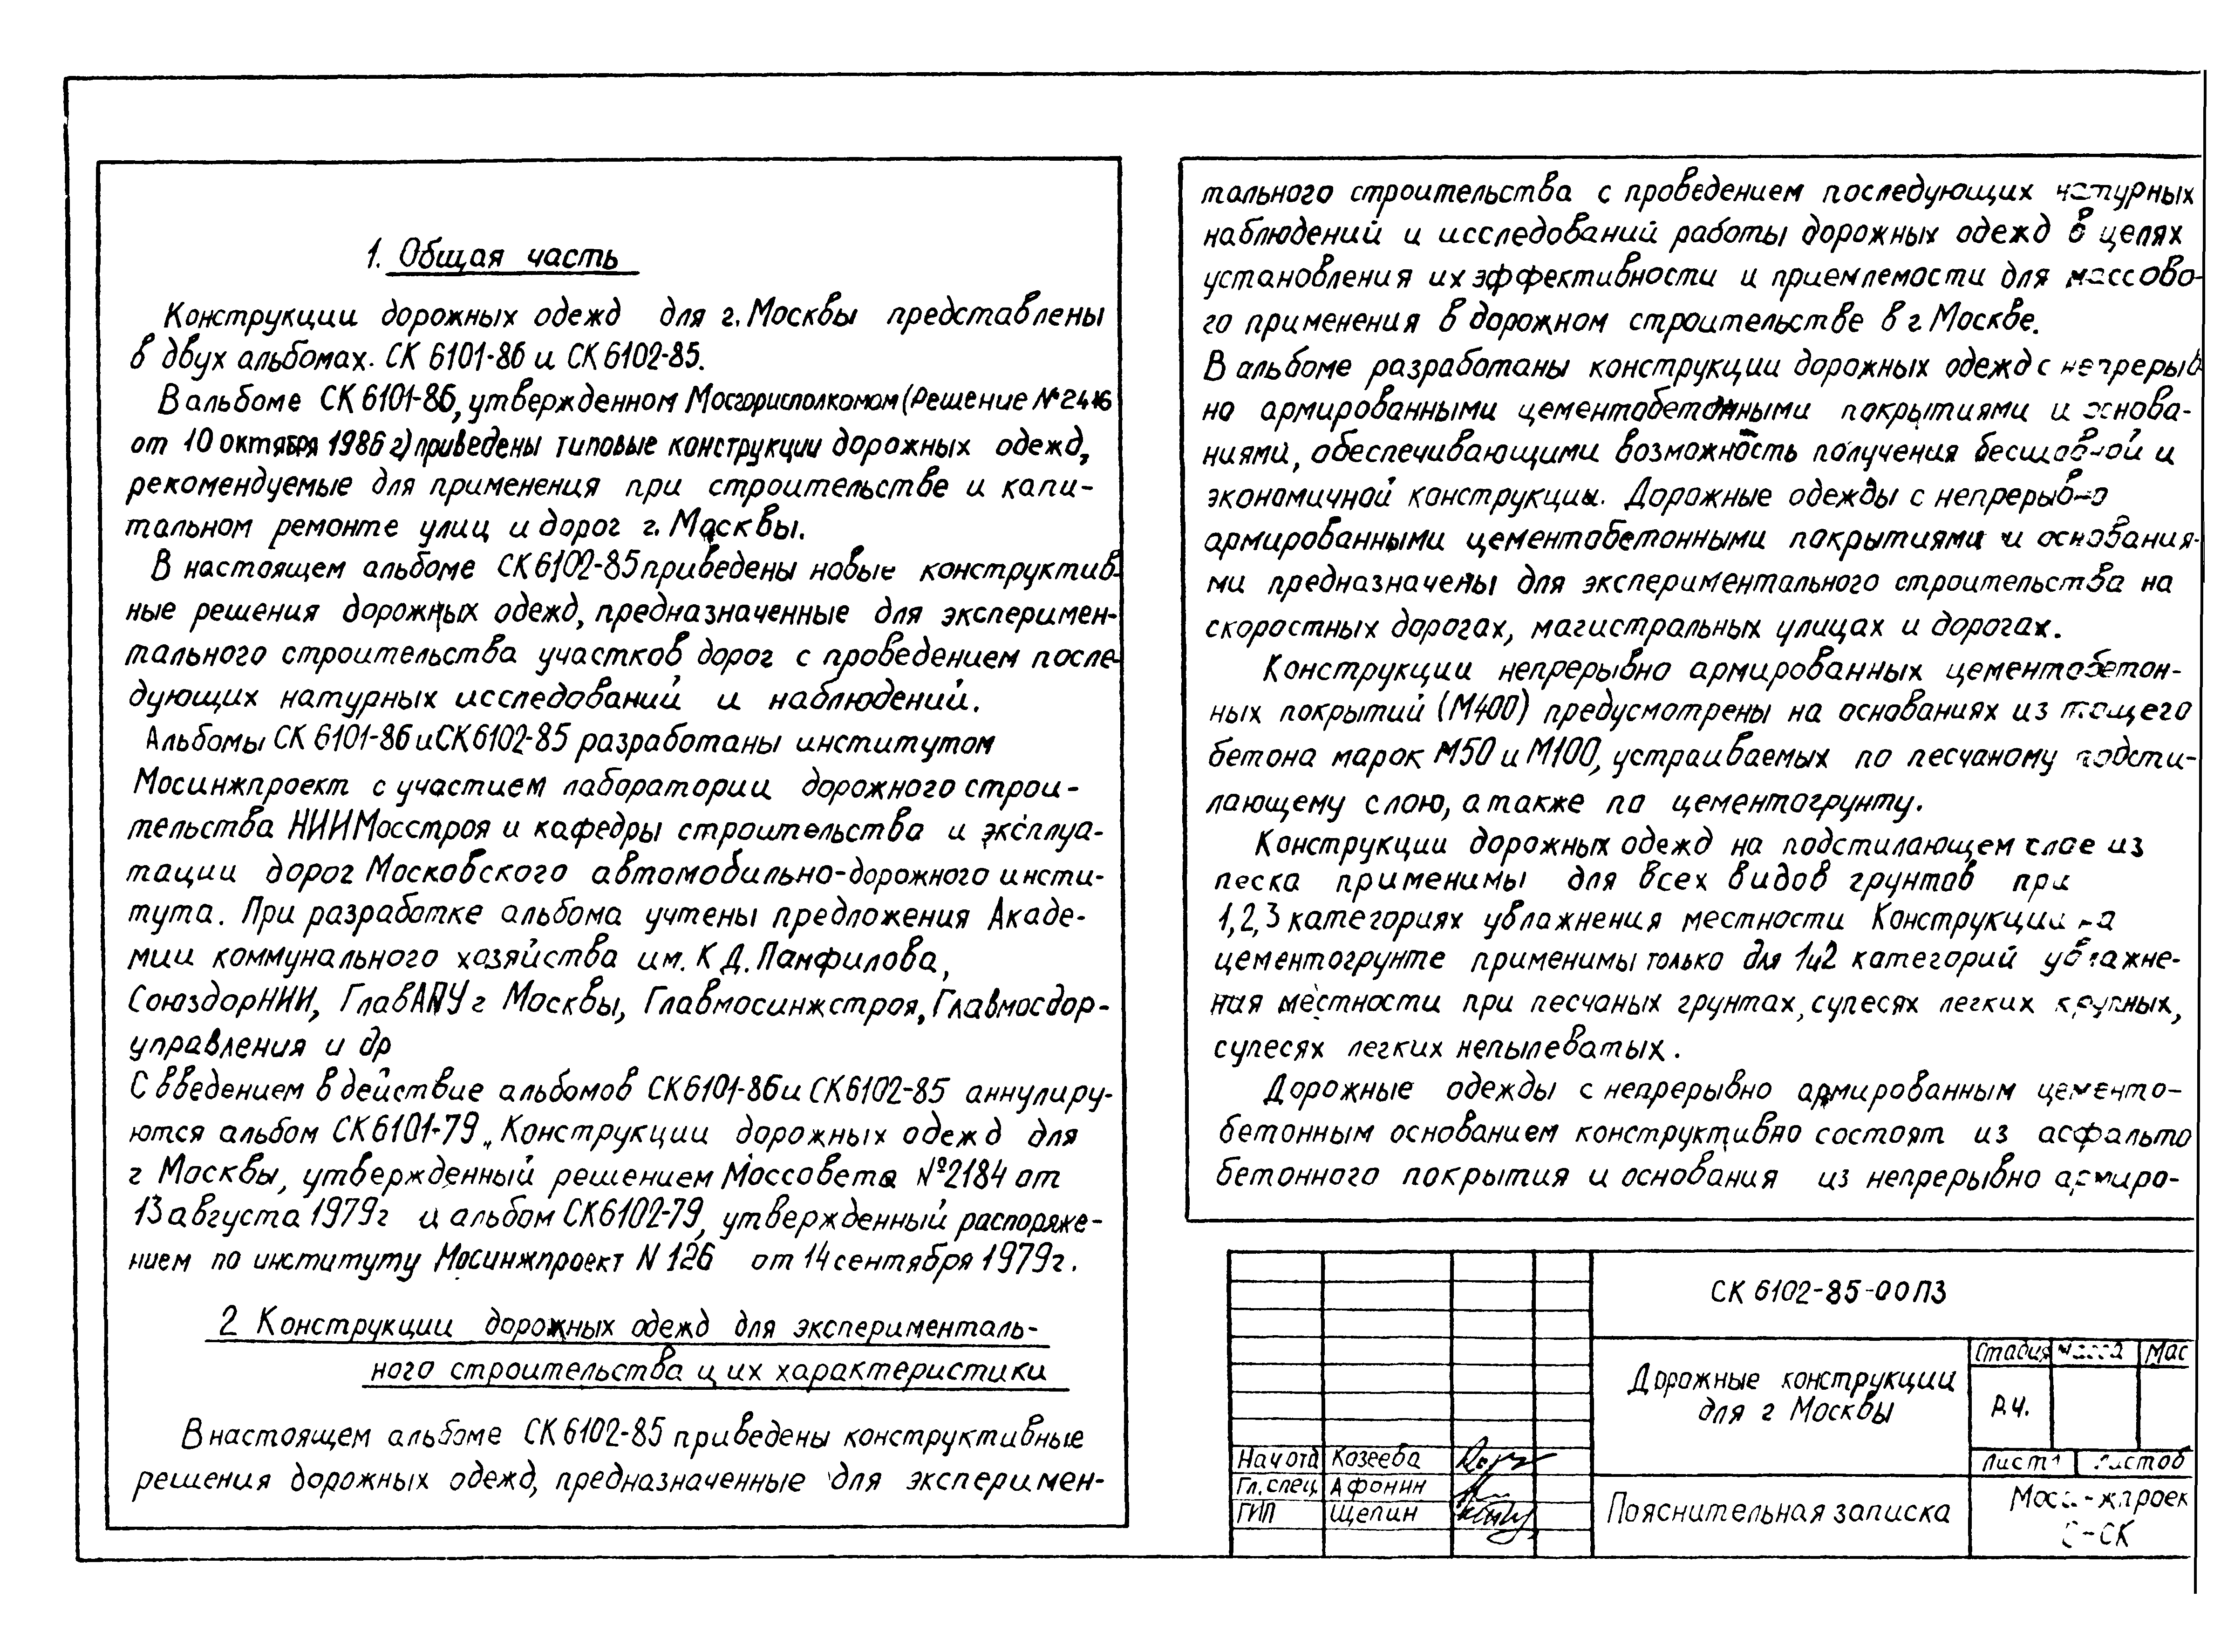 1. Общая часть
Конструкции дорожных одежд для г. Москвы представлены
в двух альбомах. СК 6101-86 и СК 6102-85.
В альбоме СК 6101-86, утвержденном Мосгорисполкомом (Решение №2416
от 10 октября 1986 г) приведены типовые конструкции дорожных одежд,
рекомендуемые для применения при строительстве и капи-
тальном ремонте улиц и дорог г. Москвы.
В настоящем альбоме СК 6102-85 приведены новые конструктив-
ные решения дорожных одежд, предназначенные для эксперимен-
тального строительства участков дорог с проведением после-
дующих натурных исследований и наблюдений.
Альбомы СК 6101-86 и СК 6102-85 разработаны институтом
Мосинжпроект с участием лаборатории дорожного строи-
тельства НИИМосстроя и кафедры строительства и эксплуа-
тации дорог Московского автомобильно-дорожного инсти-
тута. При разработке альбома учтены предложения Акаде-
мии коммунального хозяйства им. К Д. Памфилова,
СоюздорНИИ, ГлавАПУ г Москвы, Главмосинжстроя, Главмосдор-
управления и др
С введением в действие альбомов СК 6101-86 и СК 6102-85 аннулиру-
ются альбом СК 6101-79 „Конструкции дорожных одежд для
г Москвы, утвержденный решением Моссовета №2184 от
13 августа 1979г и альбом СК 6102-79, утвержденный распоряже-
нием по институту Мосинжпроект N 126 от 14 сентября 1979г.
2 Конструкции дорожных одежд для эксперименталь-
ного строительства и их характеристики
В настоящем альбоме СК 6102-85 приведены конструктивные
решения дорожных одежд, предназначенные для эксперимен-
тального строительства с проведением последующих натурных
наблюдений и исследований работы дорожных одежд в целях
установления их эффективности и приемлемости для массово-
го применения в дорожном строительстве в г Москве.
В альбоме разработаны конструкции дорожных одежд с непрерыв
но армированными цементобетонными покрытиями и основа-
ниями, обеспечивающими возможность получения бесшовной и
экономичной конструкции. Дорожные одежды с непрерывно
армированными цементобетонными покрытиями и основания-
ми предназначены для экспериментального строительства на
скоростных дорогах, магистральных улицах и дорогах.
Конструкции непрерывно армированных цементобетон-
ных покрытий (М400) предусмотрены на основаниях из тощего
бетона марок М50 и М100, устраиваемых по песчаному подсти-
лающему слою, а также по цементогрунту.
Конструкции дорожных одежд на подстилающем слое из
песка применимы для всех видов грунтов при
1, 2, 3 категориях увлажнения местности Конструкции на
цементогрунте применимы только для 1и2 категорий увлажне-
ния местности при песчаных грунтах, супесях легких крупных,
супесях легких непылеватых.
Дорожные одежды с непрерывно армированным цементо-
бетонным основанием конструктивно состоят из асфальто
бетонного покрытия и основания из непрерывно армиро-
СК 6102-85-00ПЗ
Дорожные конструкции
для г Москвы
Стадия Масса Мас
Р.Ч.
Лист 1 Листов
Нач отд Козеева
Гл. спец. Афонин
ГИП Щепин
Пояснительная записка